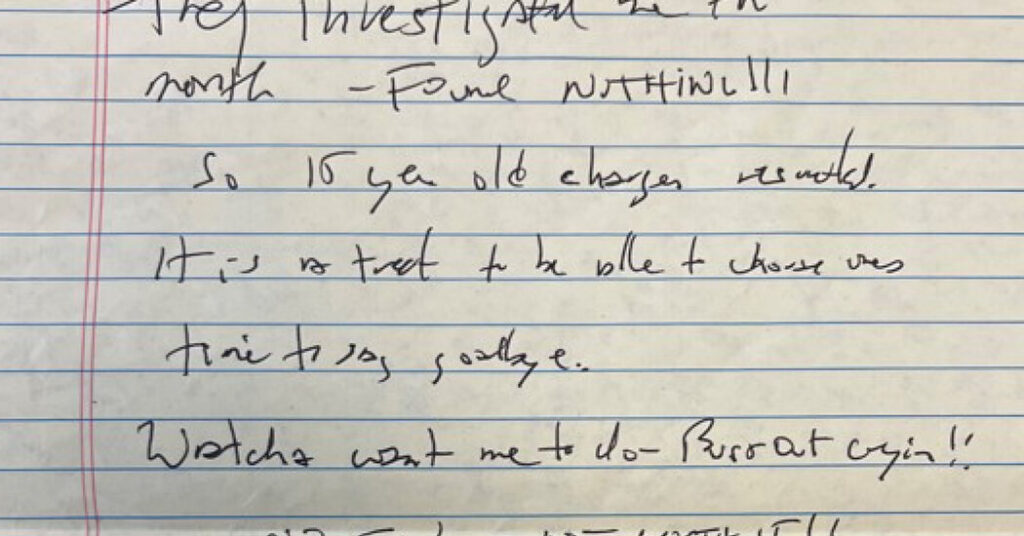 They investigated me for
month - Found NOTHING!!!
So 15 year old charges resulted.
It is a treat to be able to choose ones
time to say goodbye.
Watcha want me to do - Burst out cryin!!
NOT WORTH IT!!